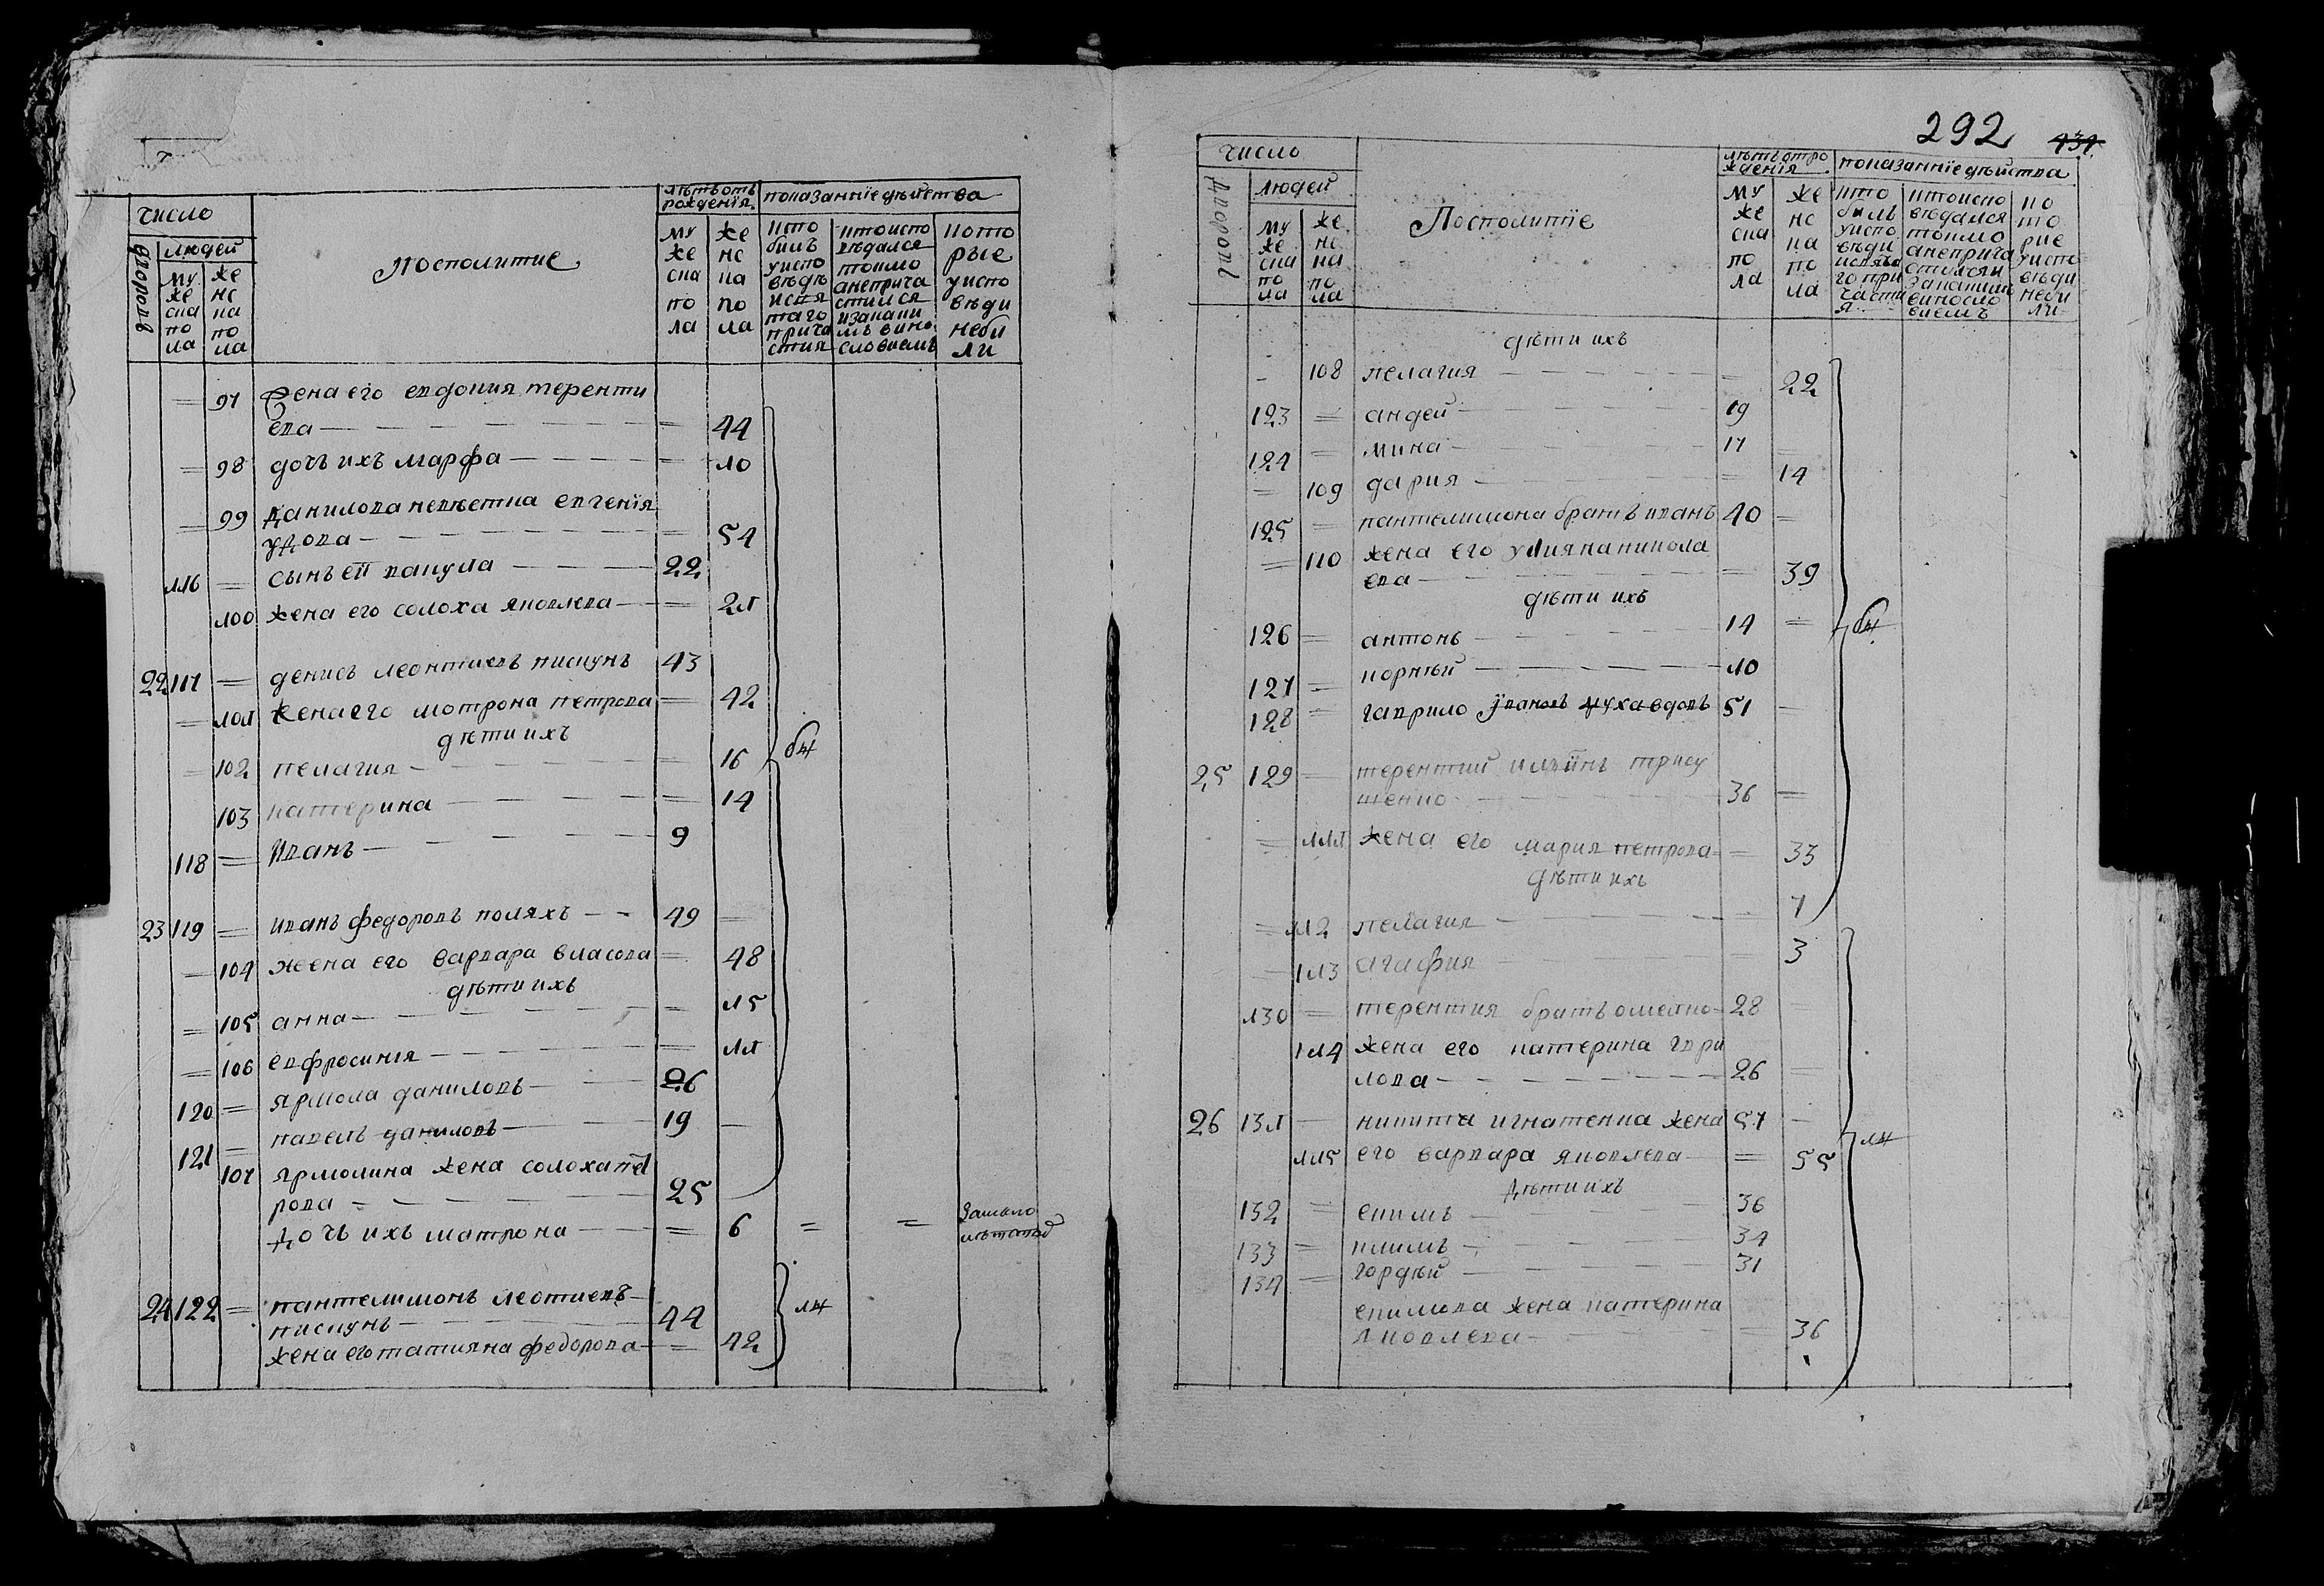 число
дворовъ
людей
му же ска по ла
же нс ка по ла
посполитие
лѣтъ отъ рожденїя
му же ска по ла
же нс ка по ла
показаннїе дѣйства
кто билъ у испо вѣдѣ и святаго прича стия
кто испо вѣдался токмо а не прича стился и за каким вино словиемъ
кото рые у испо вѣди не би ли
= 97 жена его евдокия теренти
ева — = 44
= 98 дочь ихъ марфа — = 10
= 99 данилова невѣстка евгенїя
удова — = 54
116 = сынъ ей вакула — 22
100 жена его солоха яковлева — = 21
22 117 = денисъ леонтиевъ пискунъ 43
= 101 жена его мотрона петрова = 42
дѣти ихъ
= 102 пелагия — = 16
бж
103 катерина — = 14
118 = иванъ — 9
23 119 = иванъ федоровъ поляхъ — 49 =
= 104 жена его варвара власова = 48
дѣти ихъ
= 105 анна — = 15
= 106 евфросиния — = 11
120 = ярмола даниловъ — 26
121 = павелъ даниловъ — 19 —
107 ярмолина жена солоха пет
рова — 25
дочь ихъ матрона — = 6 = = за мало
лѣтством
24 122 = пантелимонъ леотиевъ
пискунъ — 44
жена его татияна федорова — = 42
лж
292 434
число
дворовъ
людей
му же ска по ла
же нс ка по ла
Посполитїе
лѣтъ от ро жденїя
му же ска по ла
же нс ка по ла
показаннїе дѣйства
кто билъ у испо вѣди и свята го при части я
кто испо вѣдался токмо а не прича стился и за каким виносло виемъ
ко то рие у испо вѣди не би ли
дѣти ихъ
- 108 пелагия — = 22
123 = андей — 19
124 = мина — 17
= 109 дария — = 14
125 = пантелимона братъ иванъ 40 =
= 110 жена его улияна никола
ева — = 39
дѣти ихъ
126 = антонъ — 14 = бж
127 = корнѣй — 10
128 = гаврило ивановъ мухавдовъ 51 —
25 129 = терентий илѣинъ трису
шенко — 36 =
= 111 жена его мария петрова = 33
дѣти ихъ
= 112 пелагия — 7
= 113 агафия — = 3
130 = терентия братъ омелко — 28
114 жена его катерина гври
лова — 26
26 131 — никита игнатенка жена 57 —
115 его варвара яковлева — = 55
лж
дѣти ихъ
132 = екимъ — 36
133 = климъ — 34
134 = гордѣй — 31
екимова жена катерина
яковлева — = 36